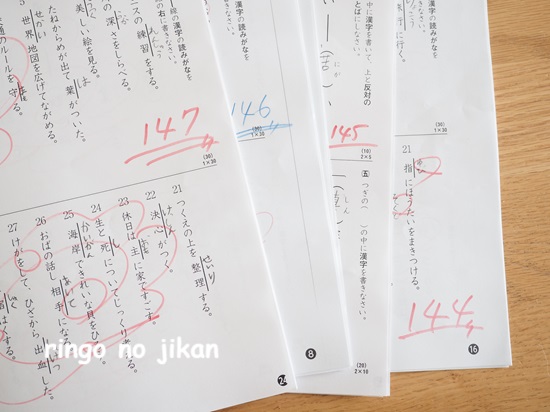 通のルールを守る。
5 世界地図を広げてながめる。
せかい
たねからめが出て葉がついた。
は
美しい絵を見る。
の深さをしらべる。
ニスの練習をする。
の右に書きなさい。
線の漢字の読みがなを
147
(30)
1×30
21 つくえの上を整理する。
せいり
22 決心がつく。
けっしん
23 休日は主に家ですごす。
おも
24 生と死についてじっくり考える。
し
25 海岸できれいな貝をひ
かいがん
26 おばの話し相手になる。
あいて
27 けがをして、ひざから出血した。
24
漢字の読みがなを
きなさい。
146
(30)
1×30
8
中に漢字を書いて、上と反対の
とばにしなさい。
にが
(苦)
145
(10)
2×5
五 つぎの( )の中に漢字を書きなさい。
しん
(20)
2×10
に行く。
(30)
1×30
21 指にほうたいをまきつける。
144
16
ringo no jikan